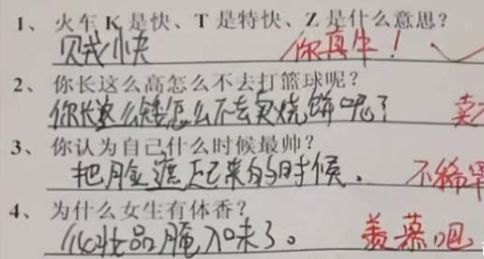 1、火车 K 是快、T 是特快、Z 是什么意思？
贼快 你真牛！
2、你长这么高怎么不去打篮球呢？
你长这么矮怎么不去卖烧饼呢？
3、你认为自己什么时候最帅？
把脸遮起来的时候。 不稀罕
4、为什么女生有体香？
化妆品腌入味了。 羡慕吧